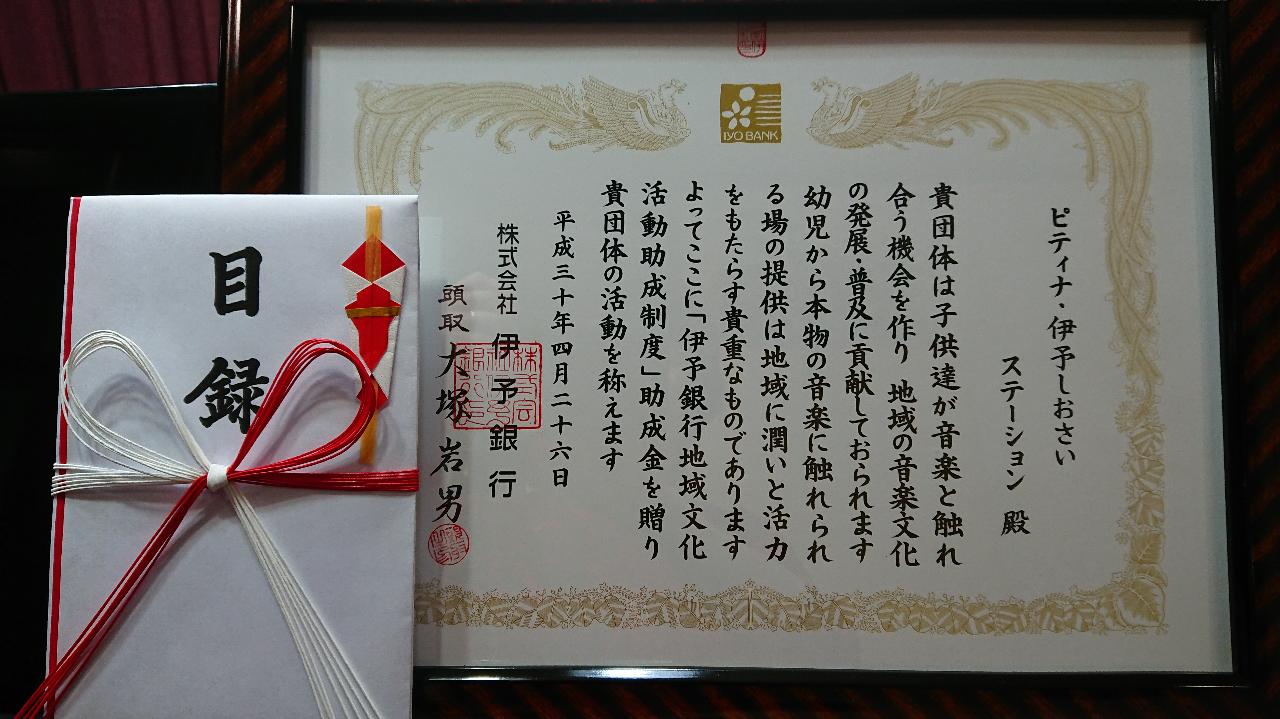 IYO BANK
ピティナ・伊予しおさい
ステーション 殿
貴団体は子供達が音楽と触れ
合う機会を作り 地域の音楽文化
の発展・普及に貢献しております
幼児から本物の音楽に触れられ
る場の提供は地域に潤いと活力
をもたらす貴重なものであります
よってここに「伊予銀行地域文化
活動助成制度」助成金を贈り
貴団体の活動を称えます
平成三十年四月二十六日
株式会社 伊予銀行
頭取 大塚岩男
目録